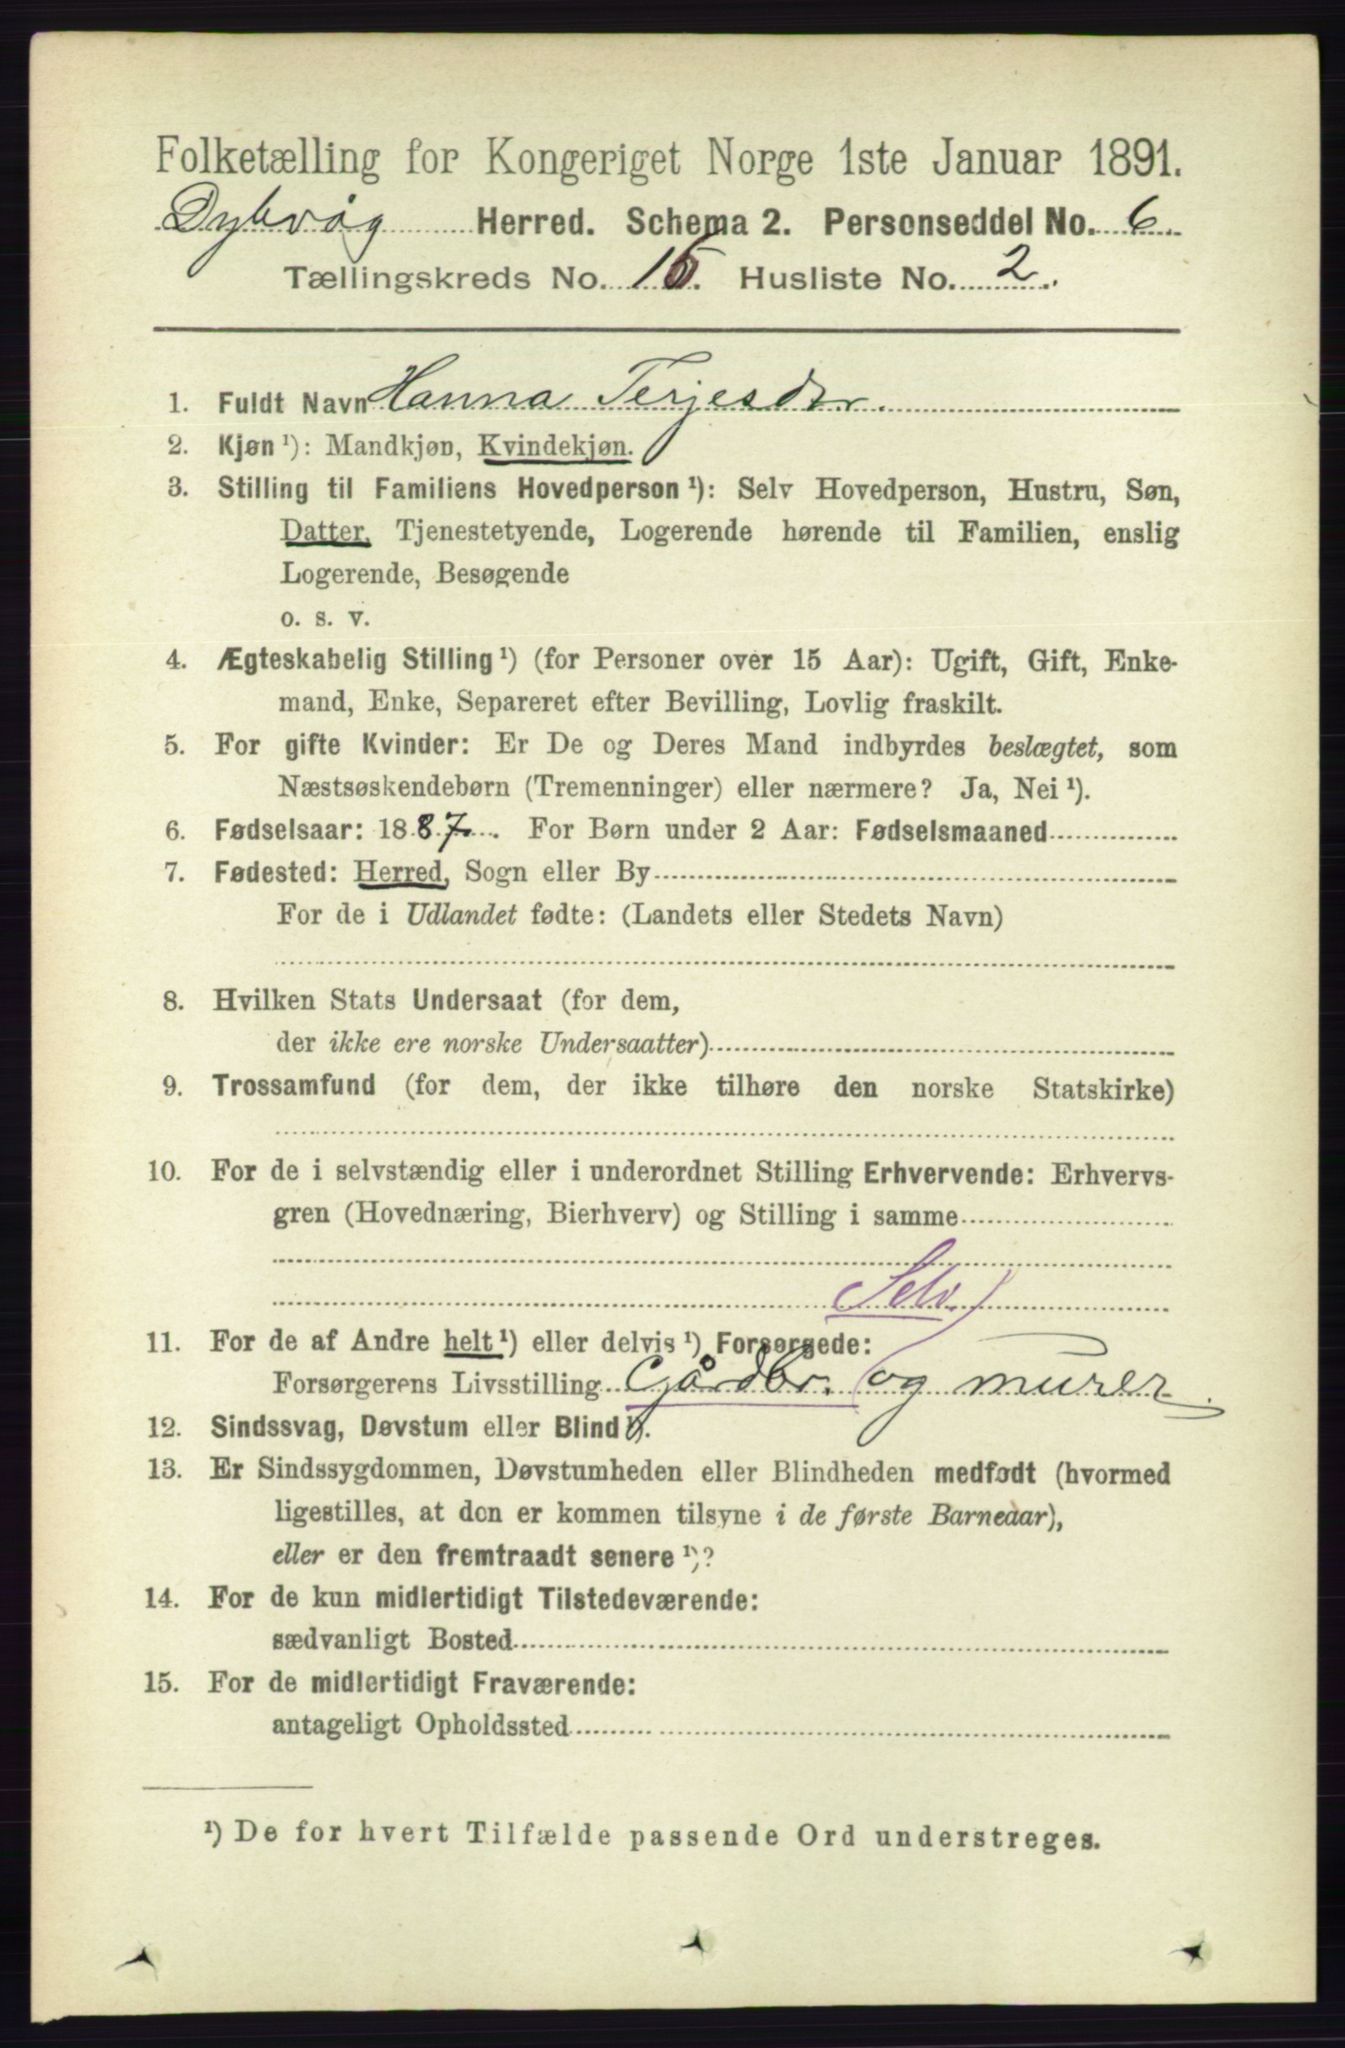 Folketælling for Kongeriget Norge 1ste Januar 1891.
Dybvåg Herred. Schema 2. Personseddel No. 6.
Tællingskreds No. 15. Husliste No. 2.
1. Fuldt Navn Hanna Terjesdtr.
2. Kjøn ¹): Mandkjøn, Kvindekjøn.
3. Stilling til Familiens Hovedperson ¹): Selv Hovedperson, Hustru, Søn,
Datter, Tjenestetyende, Logerende hørende til Familien, enslig
Logerende, Besøgende
o. s. v.
4. Ægteskabelig Stilling ¹) (for Personer over 15 Aar): Ugift, Gift, Enke-
mand, Enke, Separeret efter Bevilling, Lovlig fraskilt.
5. For gifte Kvinder: Er De og Deres Mand indbyrdes beslægtet, som
Næstsøskendebørn (Tremenninger) eller nærmere? Ja, Nei ¹).
6. Fødselsaar: 1887. For Børn under 2 Aar: Fødselsmaaned
7. Fødested: Herred, Sogn eller By
For de i Udlandet fødte: (Landets eller Stedets Navn)
8. Hvilken Stats Undersaat (for dem,
der ikke ere norske Undersaatter)
9. Trossamfund (for dem, der ikke tilhøre den norske Statskirke)
10. For de i selvstændig eller i underordnet Stilling Erhvervende: Erhvervs-
gren (Hovednæring, Bierhverv) og Stilling i samme
Selv
11. For de af Andre helt ¹) eller delvis ¹) Forsørgede:
Forsørgerens Livsstilling Gårdbr. og murer.
12. Sindssvag, Døvstum eller Blind ¹).
13. Er Sindssygdommen, Døvstumheden eller Blindheden medfødt (hvormed
ligestilles, at den er kommen tilsyne i de første Barneaar),
eller er den fremtraadt senere ¹)?
14. For de kun midlertidigt Tilstedeværende:
sædvanligt Bosted
15. For de midlertidigt Fraværende:
antageligt Opholdssted
¹) De for hvert Tilfælde passende Ord understreges.